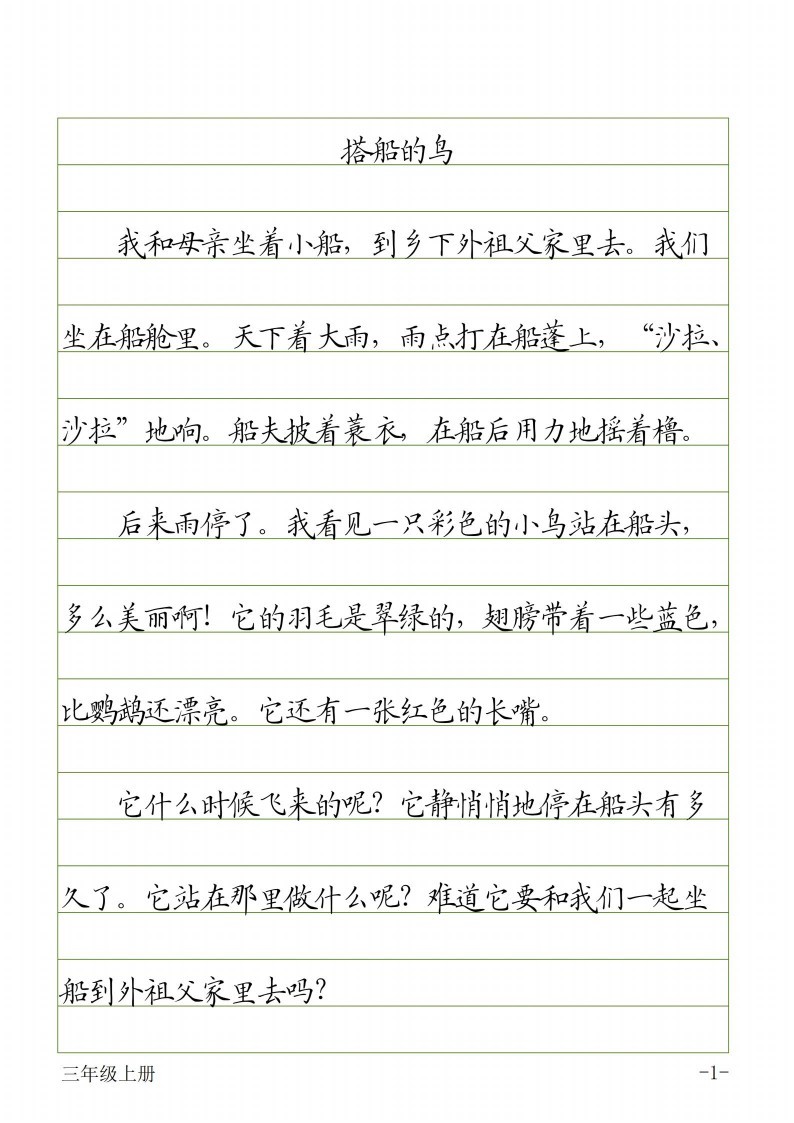 搭船的鸟
我和母亲坐着小船，到乡下外祖父家里去。我们
坐在船舱里。天下着大雨，雨点打在船蓬上，“沙拉、
沙拉”地响。船夫披着蓑衣，在船后用力地摇着橹。
后来雨停了。我看见一只彩色的小鸟站在船头，
多么美丽啊！它的羽毛是翠绿的，翅膀带着一些蓝色，
比鹦鹉还漂亮。它还有一张红色的长嘴。
它什么时候飞来的呢？它静悄悄地停在船头有多
久了。它站在那里做什么呢？难道它要和我们一起坐
船到外祖父家里去吗？
三年级上册
-1-